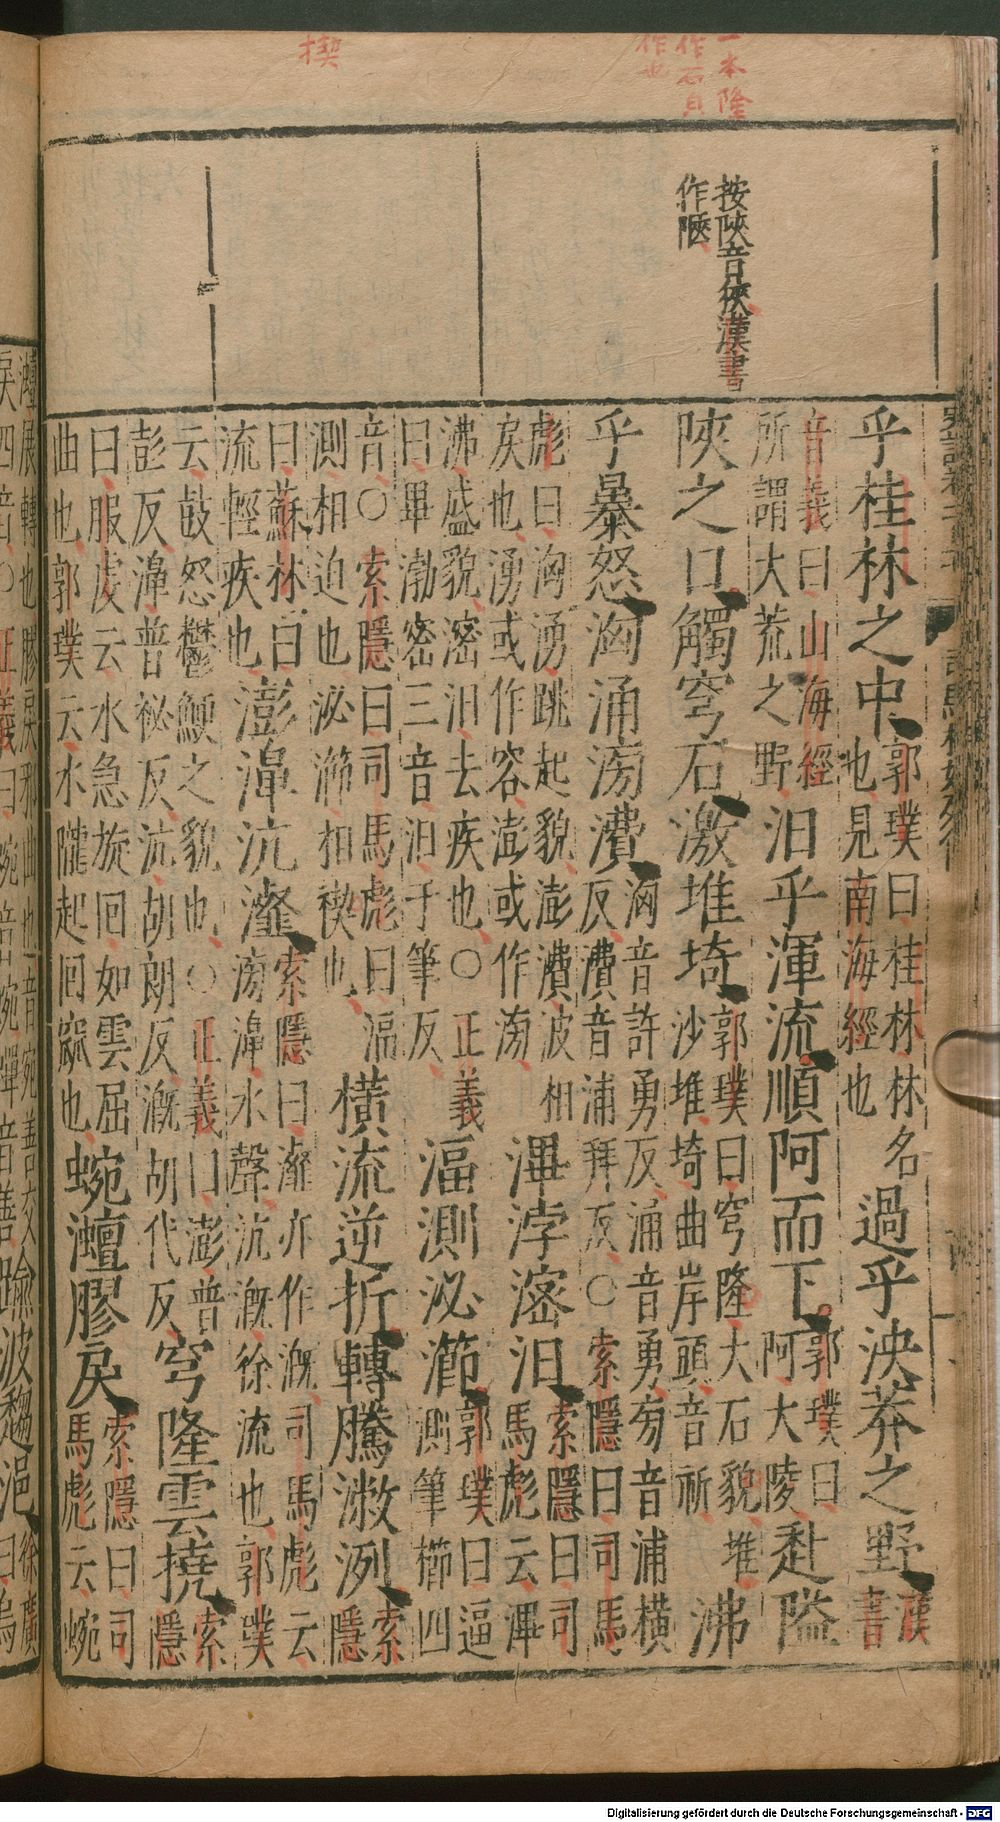 一本隆
作石貝
作也
揳
按陜音俠漢書
作陿
乎桂林之中郭璞曰桂林林名也見南海經也過乎泱莽之野漢書
音義曰山海經所謂大荒之野汩乎渾流順阿而下郭璞曰阿大陵赴隘
陜之口觸穹石激堆埼郭璞曰穹隆大石貌堆沙堆埼曲岸頭音祈沸
乎暴怒洶涌滂㵒洶音許勇反涌音勇滂音浦橫反㵒音浦拜反○索隱曰司馬
彪曰洶湧跳起貌澎㵒波相戾也湧或作容澎或作滂滭浡滵汩索隱曰司馬彪云滭
沸盛貌滵汩去疾也○正義曰畢渤密三音汩于筆反湢測泌瀄郭璞曰逼測筆櫛四
音○索隱曰司馬彪曰湢測相迫也泌瀄相禊也橫流逆折轉騰潎洌索隱
曰蘇林曰流輕疾也澎濞沆瀣索隱曰瀣亦作溉司馬彪云滂濞水聲沆溉徐流也郭璞
云鼓怒鬱鯁之貌也○正義曰澎普彭反濞普祕反沆胡朗反溉胡代反穹隆雲撓索隱
曰服虔云水急旋回如雲屈曲也郭璞云水隴起回窳也蜿灗膠戾索隱曰司馬彪云蜿
灗展轉也膠戾邪曲也音宛善交戾四音○正義曰蜿音婉灗音善踰波趨浥徐廣曰烏
Digitalisierung gefördert durch die Deutsche Forschungsgemeinschaft - DFG